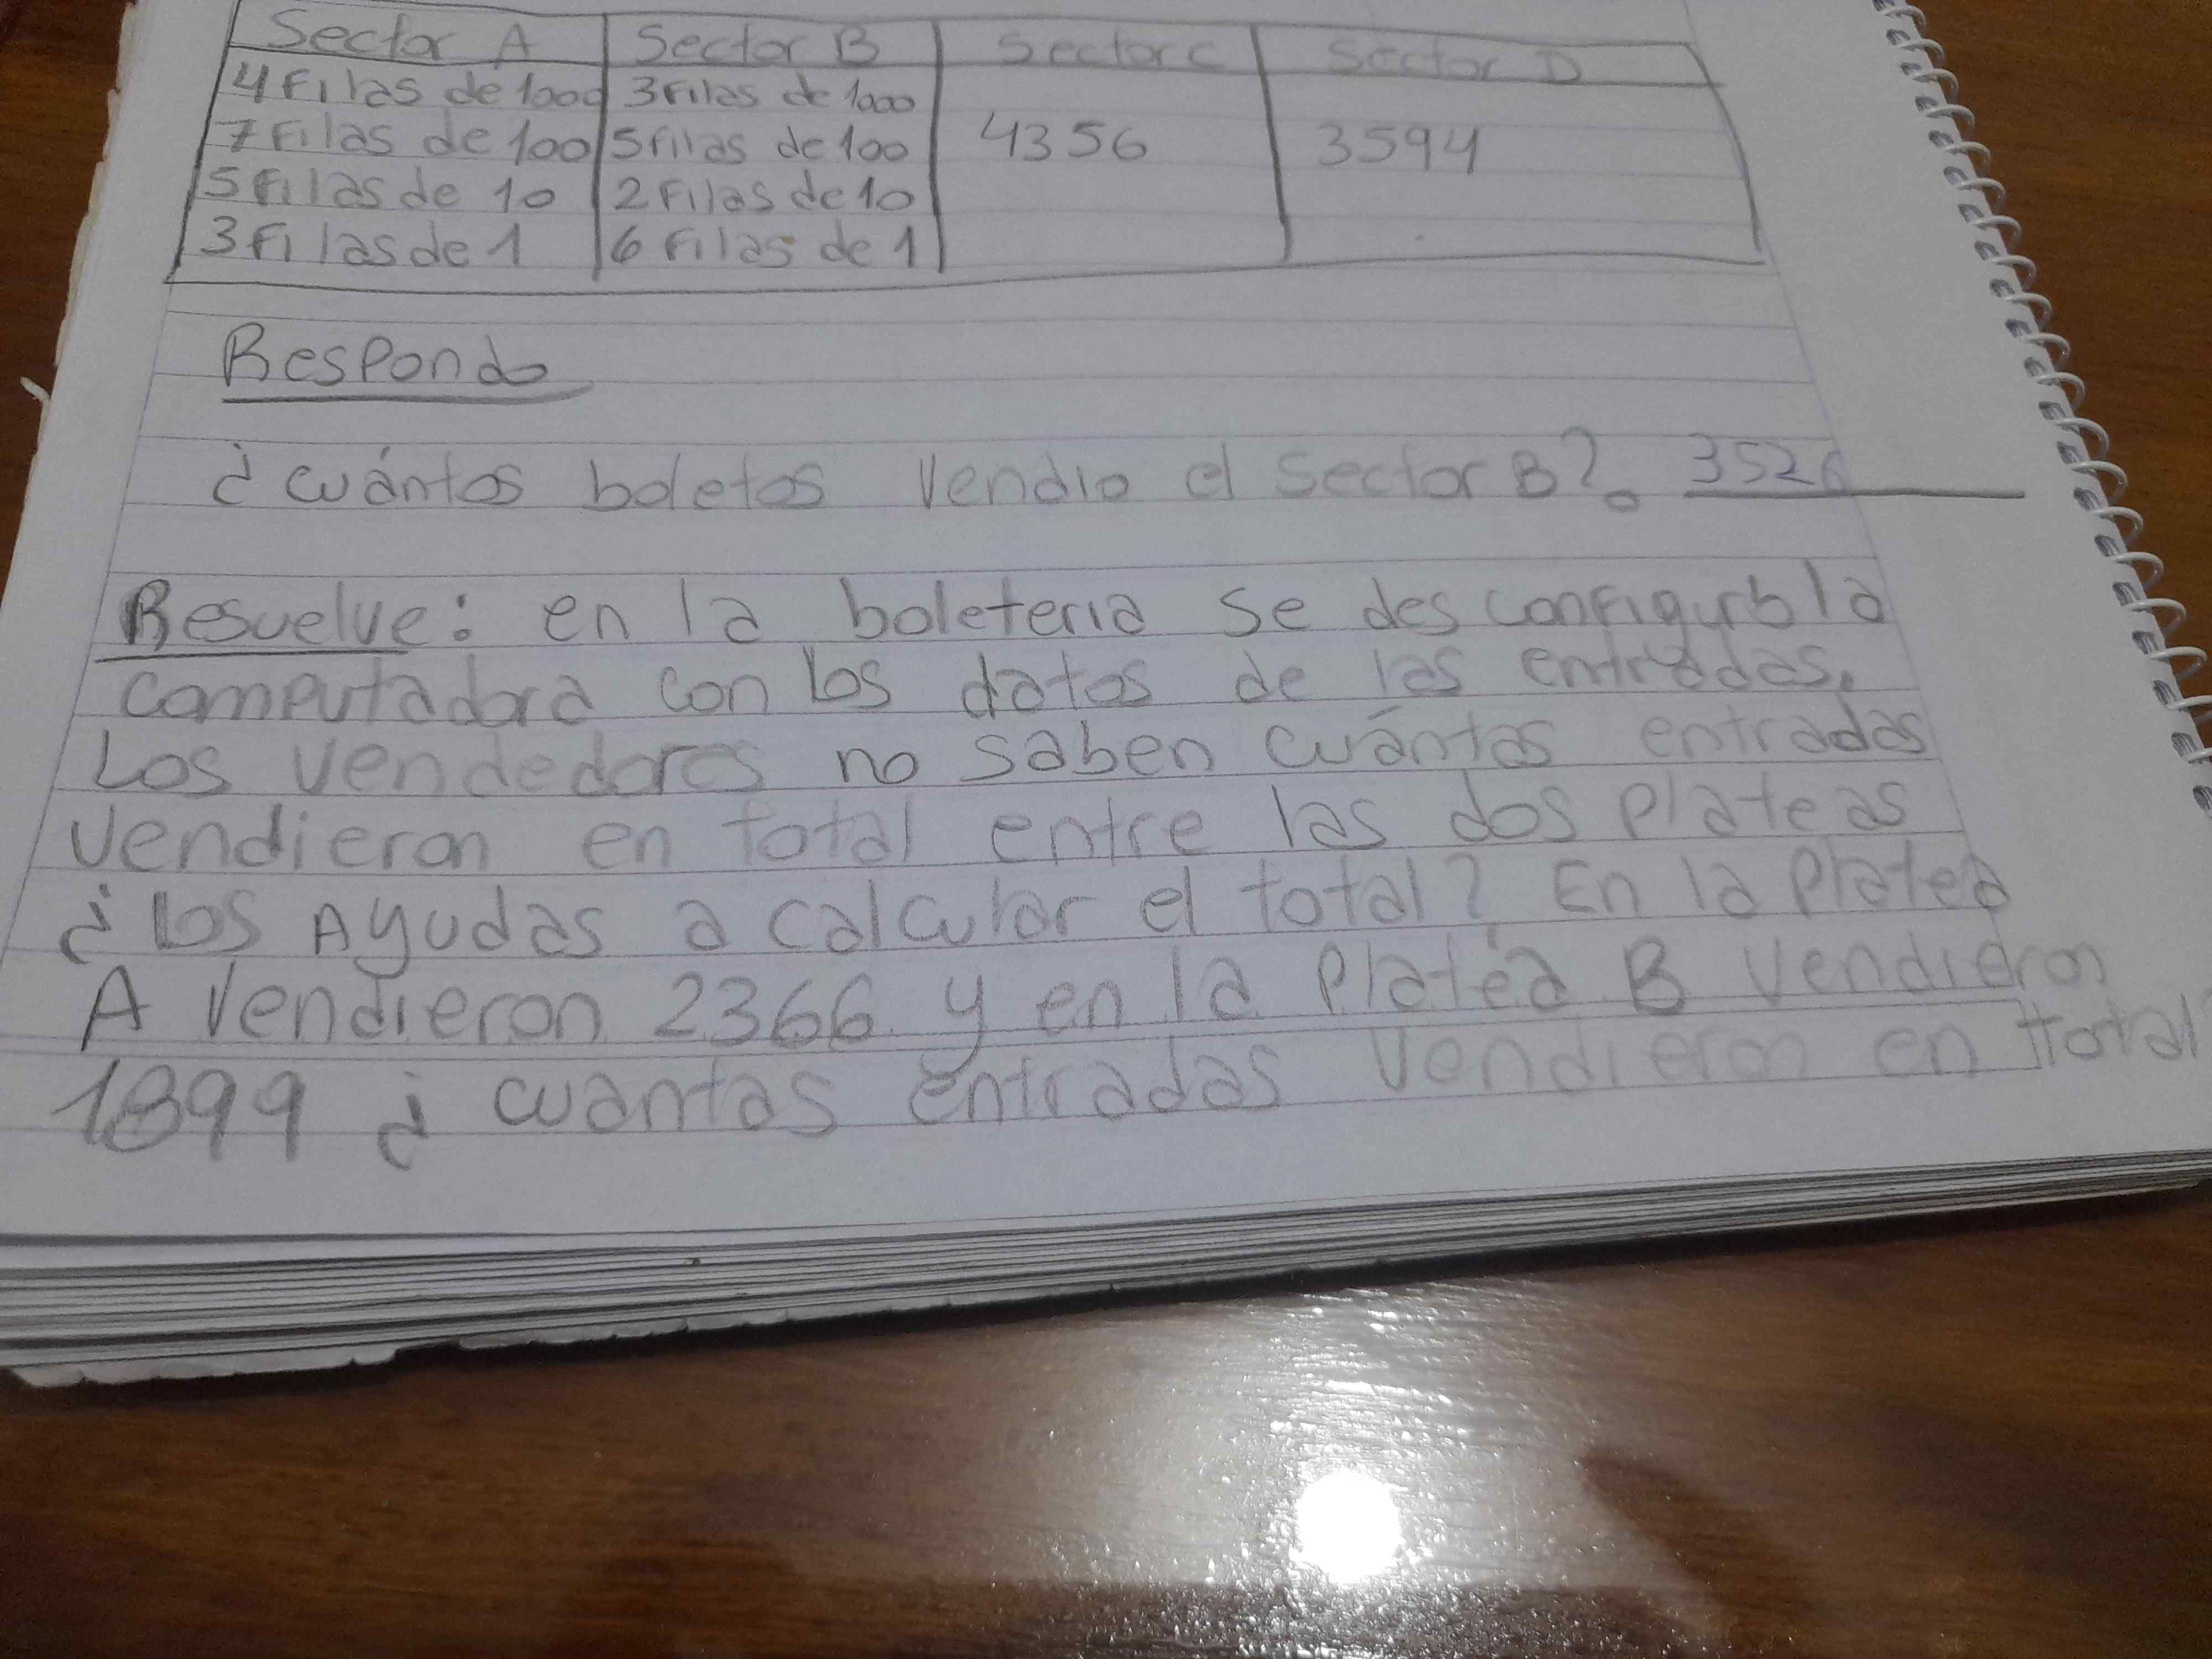 Sector A Sector B Sector C Sector D
4 Filas de 1000 3 Filas de 1000
7 Filas de 100 5 filas de 100 4356 3594
5 Filas de 10 2 Filas de 10
3 Filas de 1 6 Filas de 1
Respondo
¿cuántos boletos vendio el Sector B?. 3526
Resuelve: en la boleteria se des configuró la
computadora con los datos de las entradas.
Los vendedores no saben cuántas entradas
vendieron en total entre las dos plateas
¿los Ayudas a calcular el total? En la Platea
A vendieron 2366 y en la Platea B vendieron
1899 ¿ cuantas entradas vendieron en total